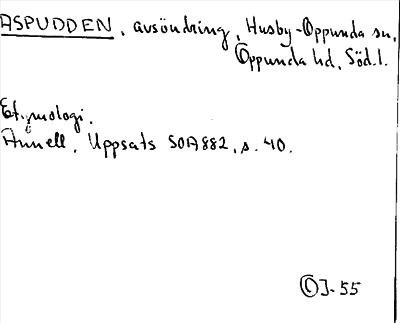 ASPUDDEN, avsöndring, Husby-Oppunda sn,
Oppunda hd, Södl.
Etymologi.
Ånnell, Uppsats SOA 882, s. 40.
OJ-55